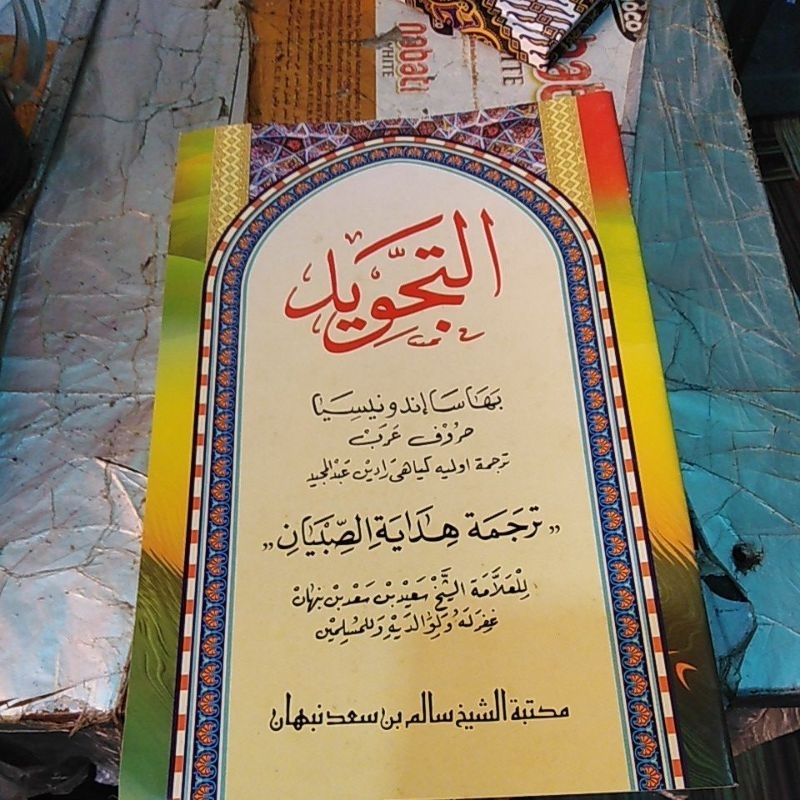 nabati
WHITE
TTE
التجويد
بَهَاسَا إندونيسِيَا
حرُوْف عَرَبْ
ترجمة اوليه كياهي رادين عَبْدالمجيد
„ترجَمَة هِدَايَةِ الصِّبْيَانِ„
لِلْعَلَّامَة الشَّيْخْ سَعِيْد بْن سَعَد بن نبهانْ
غفِرلَهُ وَلِوَالدَيْهِ وَللمُسلِمِيْن
مكتبة الشيخ سالم بن سعد نبهان